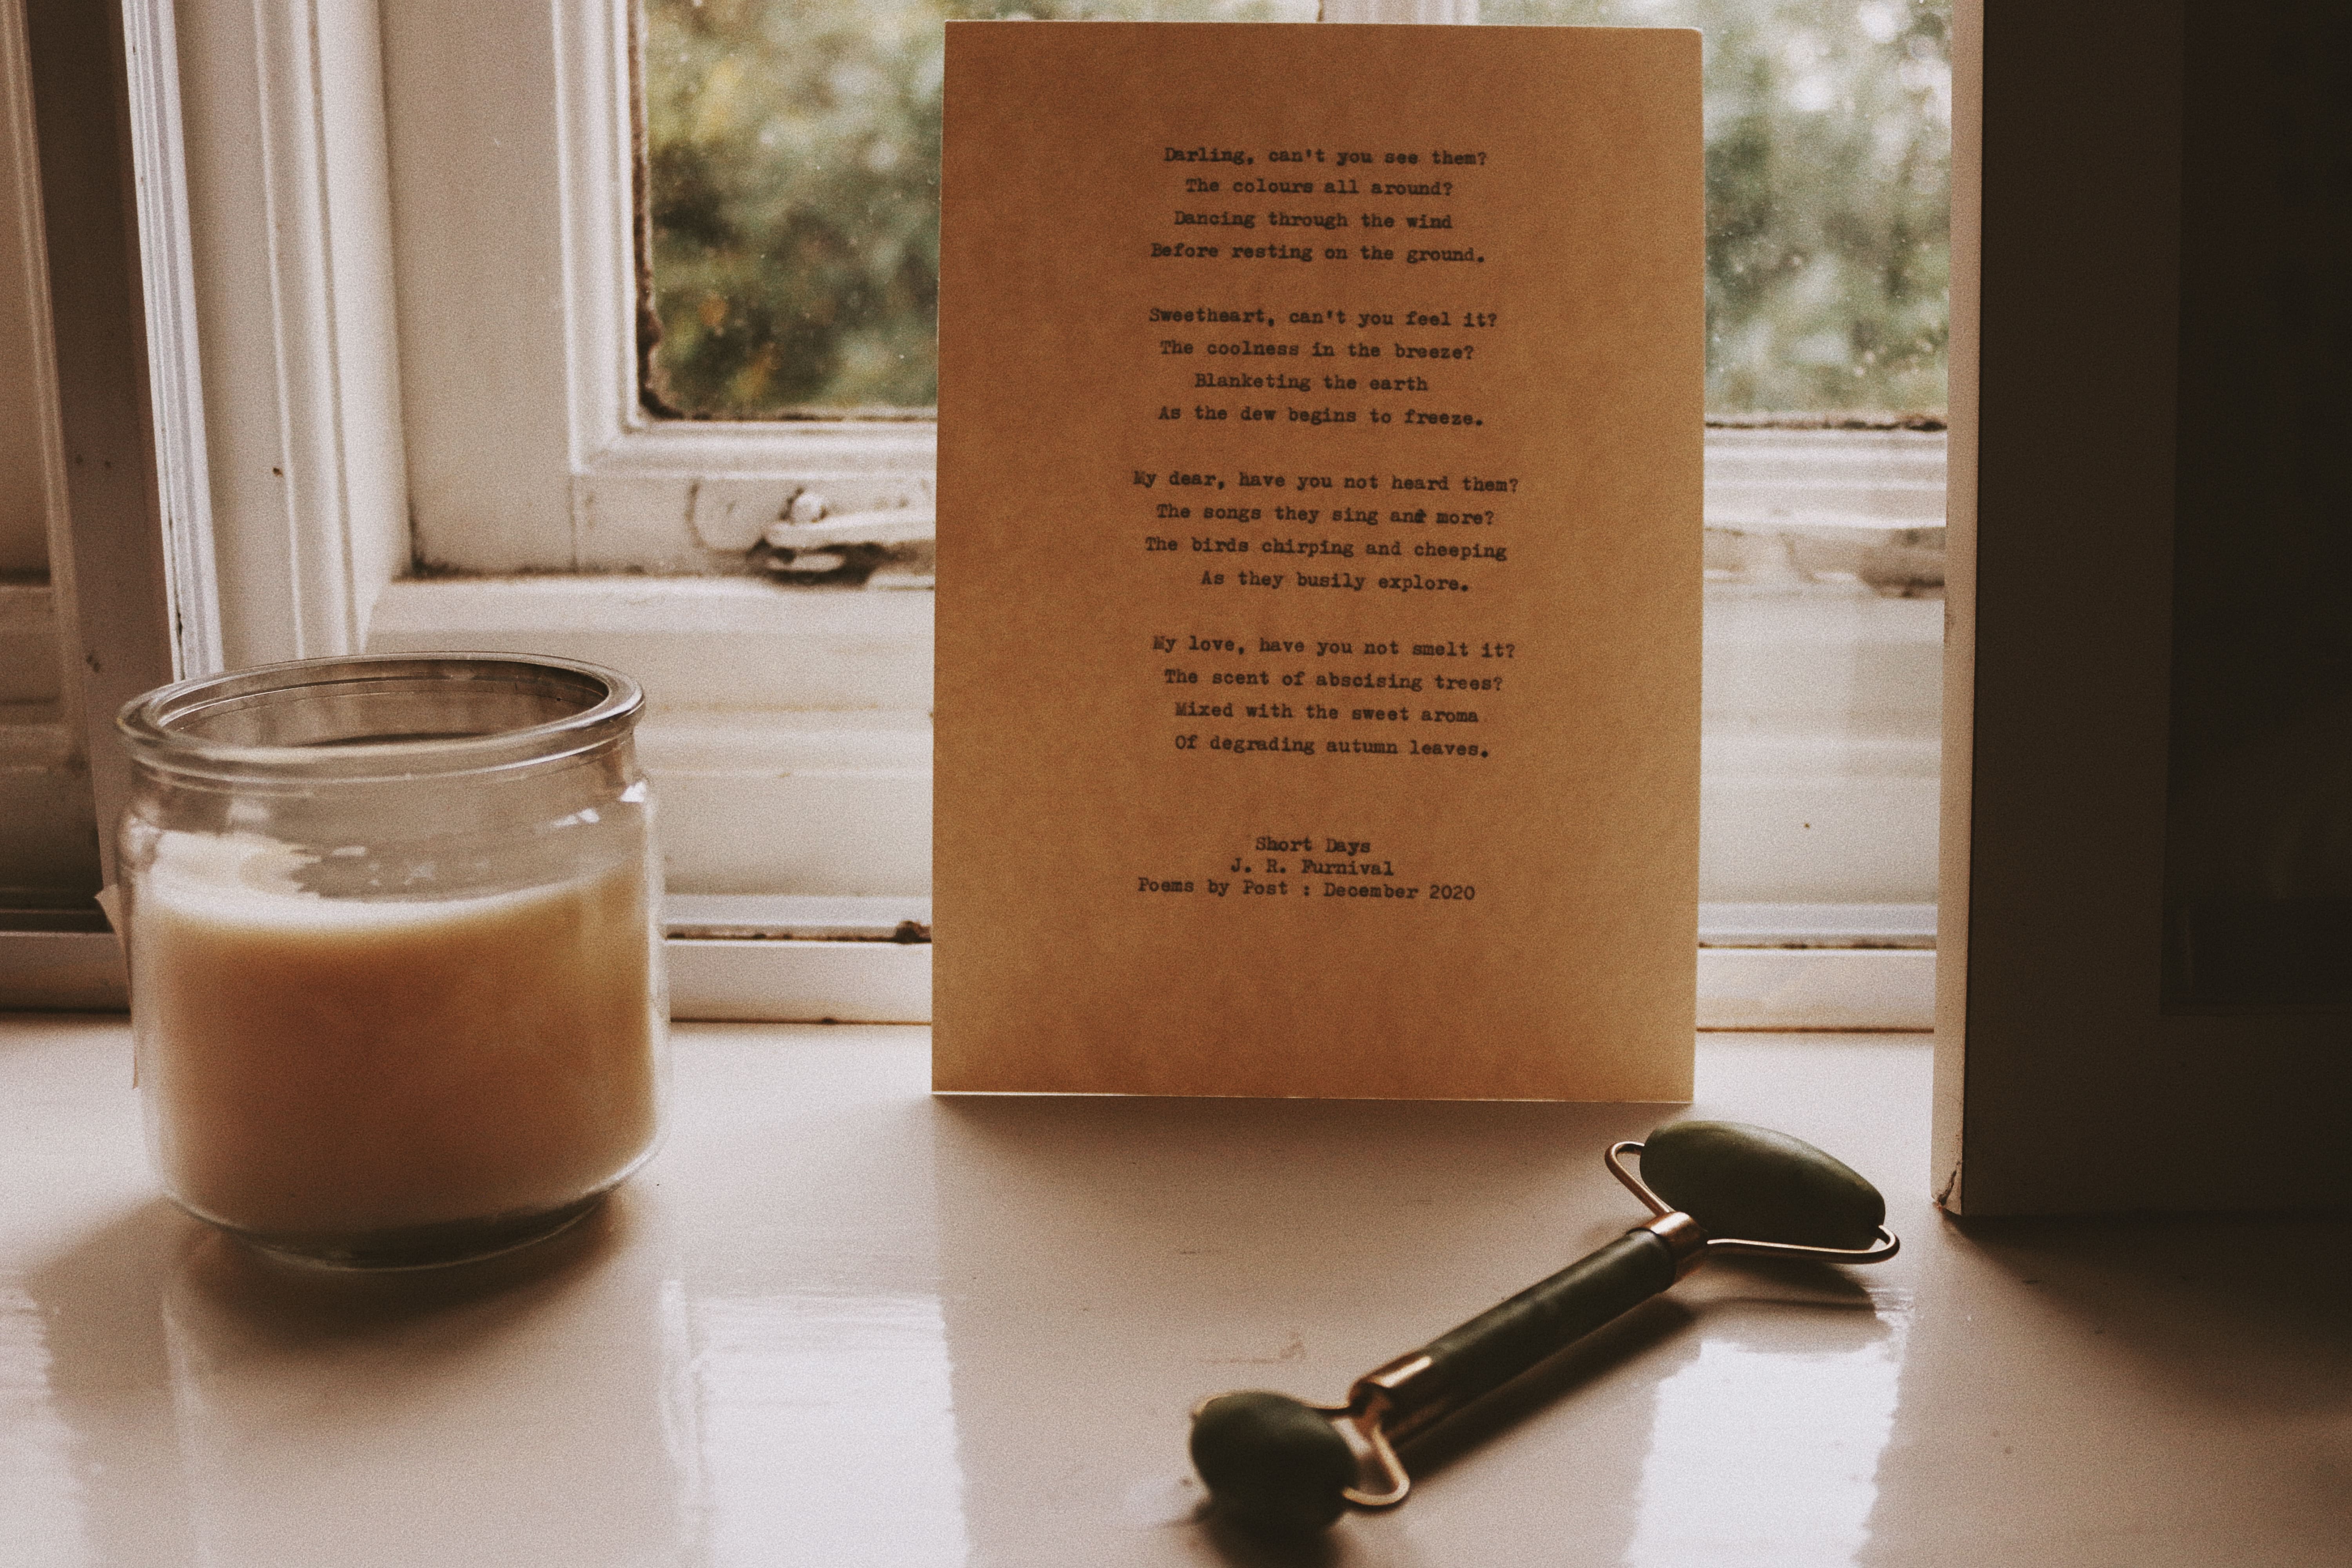 Darling, can't you see them?
The colours all around?
Dancing through the wind
Before resting on the ground.
Sweetheart, can't you feel it?
The coolness in the breeze?
Blanketing the earth
As the dew begins to freeze.
My dear, have you not heard them?
The songs they sing and more?
The birds chirping and cheeping
As they busily explore.
My love, have you not smelt it?
The scent of abscising trees?
Mixed with the sweet aroma
Of degrading autumn leaves.
Short Days
J. R. Furnival
Poems by Post : December 2020